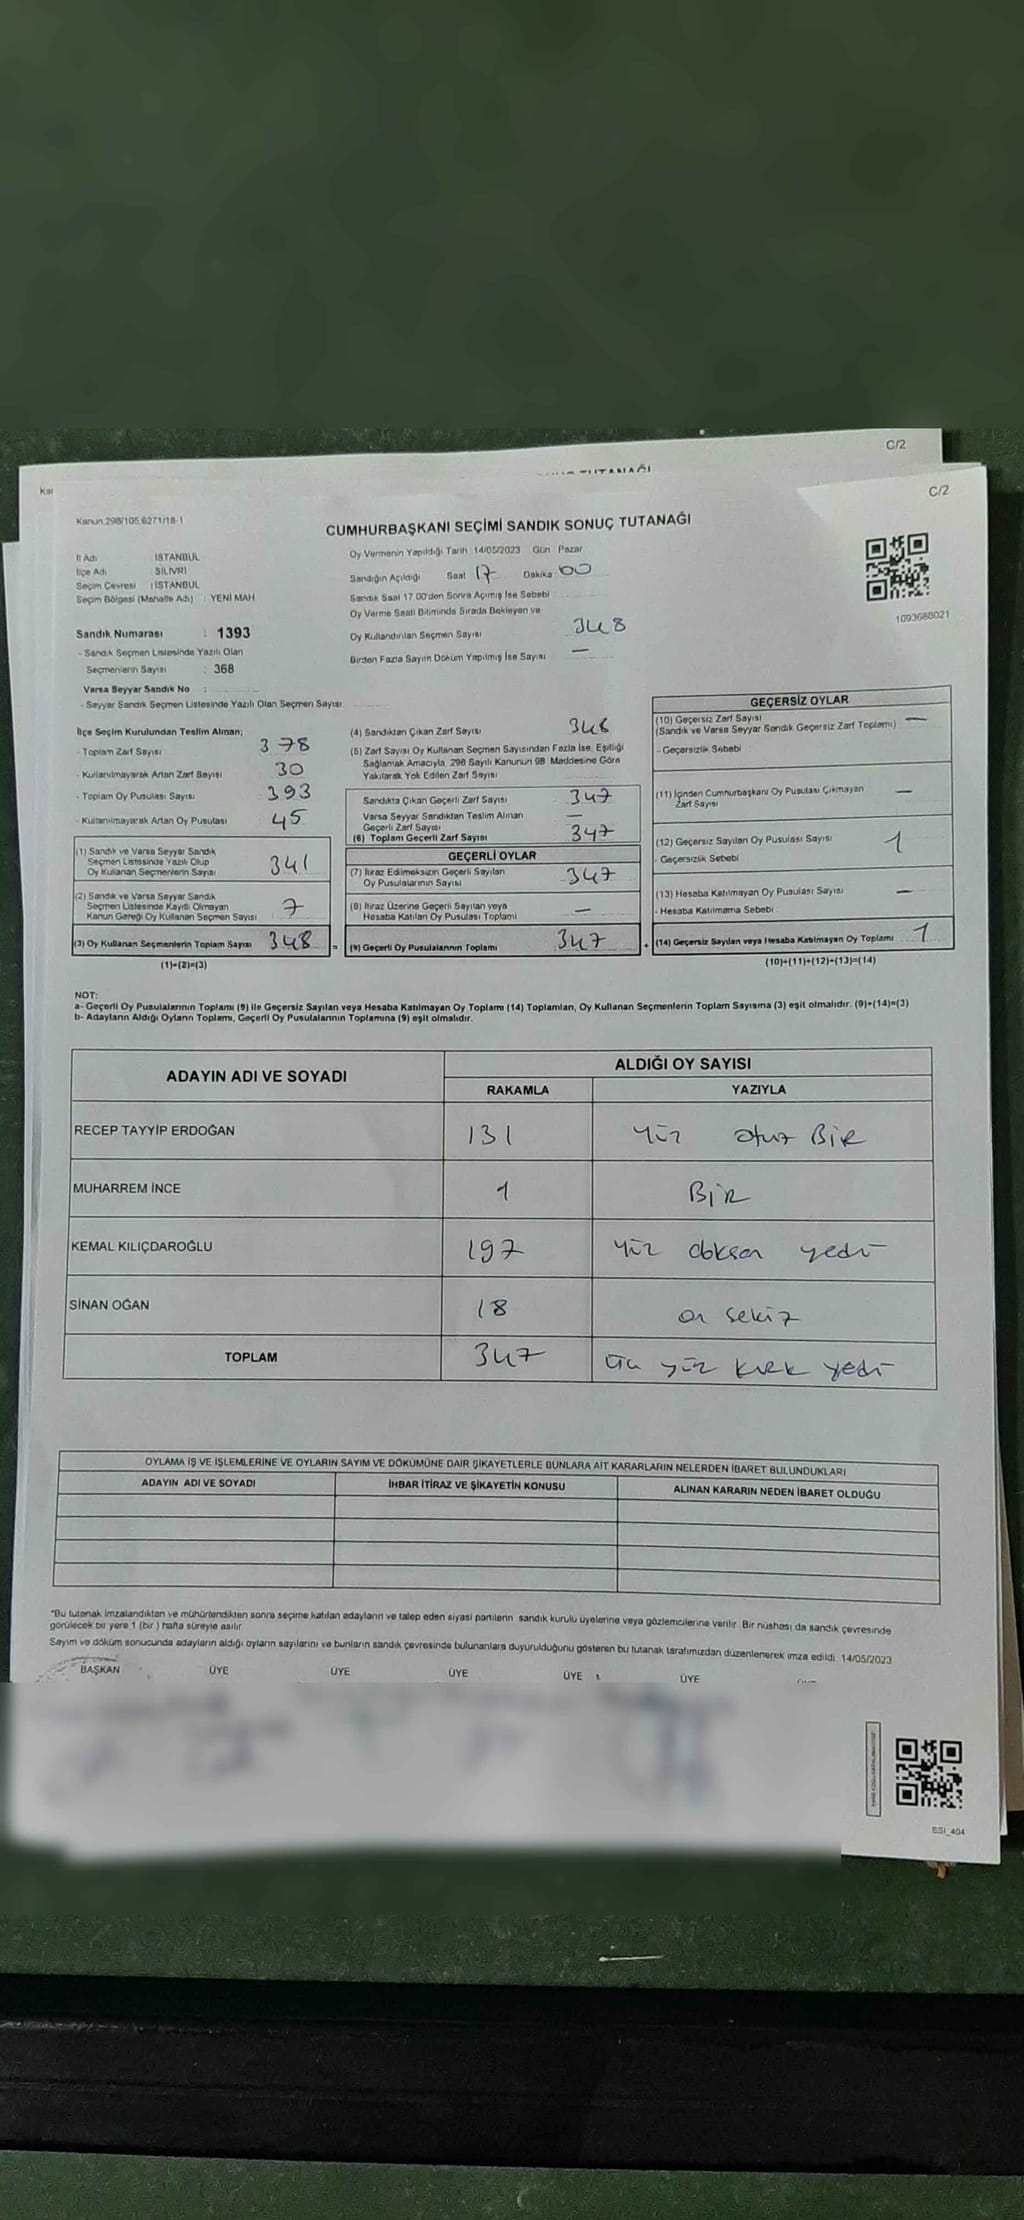 C/2
TUTANAĞI
C/2
Kanun:298/105,6271/18-1
CUMHURBAŞKANI SEÇİMİ SANDIK SONUÇ TUTANAĞI
1093688021
İl Adı : İSTANBUL
İlçe Adı : SİLİVRİ
Seçim Çevresi : İSTANBUL
Seçim Bölgesi (Mahalle Adı) : YENİ MAH
Sandık Numarası : 1393
- Sandık Seçmen Listesinde Yazılı Olan
Seçmenlerin Sayısı : 368
Varsa Seyyar Sandık No :
- Seyyar Sandık Seçmen Listesinde Yazılı Olan Seçmen Sayısı:
Oy Vermenin Yapıldığı Tarih :14/05/2023 Gün : Pazar
Sandığın Açıldığı Saat 17 Dakika 00
Sandık Saat 17.00'den Sonra Açımış İse Sebebi :
Oy Verme Saati Bitiminde Sırada Bekleyen ve
Oy Kullandırılan Seçmen Sayısı 348
Birden Fazla Sayım Döküm Yapılmış İse Sayısı —
İlçe Seçim Kurulundan Teslim Alınan;
- Toplam Zarf Sayısı : 378
- Kullanılmayarak Artan Zarf Sayısı : 30
- Toplam Oy Pusulası Sayısı : 393
- Kullanılmayarak Artan Oy Pusulası : 45
(1) Sandık ve Varsa Seyyar Sandık
Seçmen Listesinde Yazılı Olup
Oy Kullanan Seçmenlerin Sayısı 341
(2) Sandık ve Varsa Seyyar Sandık
Seçmen Listesinde Kayıtlı Olmayan
Kanun Gereği Oy Kullanan Seçmen Sayısı 7
(3) Oy Kullanan Seçmenlerin Toplam Sayısı 348
(1)+(2)=(3)
(4) Sandıktan Çıkan Zarf Sayısı 348
(5) Zarf Sayısı Oy Kullanan Seçmen Sayısından Fazla İse, Eşitliği
Sağlamak Amacıyla, 298 Sayılı Kanunun 98. Maddesine Göre
Yakılarak Yok Edilen Zarf Sayısı
Sandıkta Çıkan Geçerli Zarf Sayısı 347
Varsa Seyyar Sandıktan Teslim Alınan
Geçerli Zarf Sayısı —
(6) Toplam Geçerli Zarf Sayısı 347
GEÇERLİ OYLAR
(7) İtiraz Edilmeksizin Geçerli Sayılan
Oy Pusulalarının Sayısı 347
(8) İtiraz Üzerine Geçerli Sayılan veya
Hesaba Katılan Oy Pusulası Toplamı —
= (9) Geçerli Oy Pusulalarının Toplamı 347
GEÇERSİZ OYLAR
(10) Geçersiz Zarf Sayısı
(Sandık ve Varsa Seyyar Sandık Geçersiz Zarf Toplamı) —
- Geçersizlik Sebebi :
(11) İçinden Cumhurbaşkanı Oy Pusulası Çıkmayan
Zarf Sayısı —
(12) Geçersiz Sayılan Oy Pusulası Sayısı 1
- Geçersizlik Sebebi :
(13) Hesaba Katılmayan Oy Pusulası Sayısı —
- Hesaba Katılmama Sebebi :
+ (14) Geçersiz Sayılan veya Hesaba Katılmayan Oy Toplamı 1
(10)+(11)+(12)+(13)=(14)
NOT:
a- Geçerli Oy Pusulalarının Toplamı (9) ile Geçersiz Sayılan veya Hesaba Katılmayan Oy Toplamı (14) Toplamları, Oy Kullanan Seçmenlerin Toplam Sayısına (3) eşit olmalıdır. (9)+(14)=(3)
b- Adayların Aldığı Oyların Toplamı, Geçerli Oy Pusulalarının Toplamına (9) eşit olmalıdır.
ADAYIN ADI VE SOYADI
ALDIĞI OY SAYISI
RAKAMLA YAZIYLA
RECEP TAYYİP ERDOĞAN 131 Yüz otuz Bir
MUHARREM İNCE 1 Bir
KEMAL KILIÇDAROĞLU 197 Yüz doksan yedi
SİNAN OĞAN 18 on sekiz
TOPLAM 347 Üç yüz kırk yedi
OYLAMA İŞ VE İŞLEMLERİNE VE OYLARIN SAYIM VE DÖKÜMÜNE DAİR ŞİKAYETLERLE BUNLARA AİT KARARLARIN NELERDEN İBARET BULUNDUKLARI
ADAYIN ADI VE SOYADI İHBAR İTİRAZ VE ŞİKAYETİN KONUSU ALINAN KARARIN NEDEN İBARET OLDUĞU
*Bu tutanak imzalandıktan ve mühürlendikten sonra seçime katılan adayların ve talep eden siyasi partilerin sandık kurulu üyelerine veya gözlemcilerine verilir. Bir nüshası da sandık çevresinde
görülecek bir yere 1 (bir) hafta süreyle asılır
Sayım ve döküm sonucunda adayların aldığı oyların sayılarını ve bunların sandık çevresinde bulunanlara duyurulduğunu gösteren bu tutanak tarafımızdan düzenlenerek imza edildi. 14/05/2023
BAŞKAN ÜYE ÜYE ÜYE ÜYE ÜYE
BSI_404